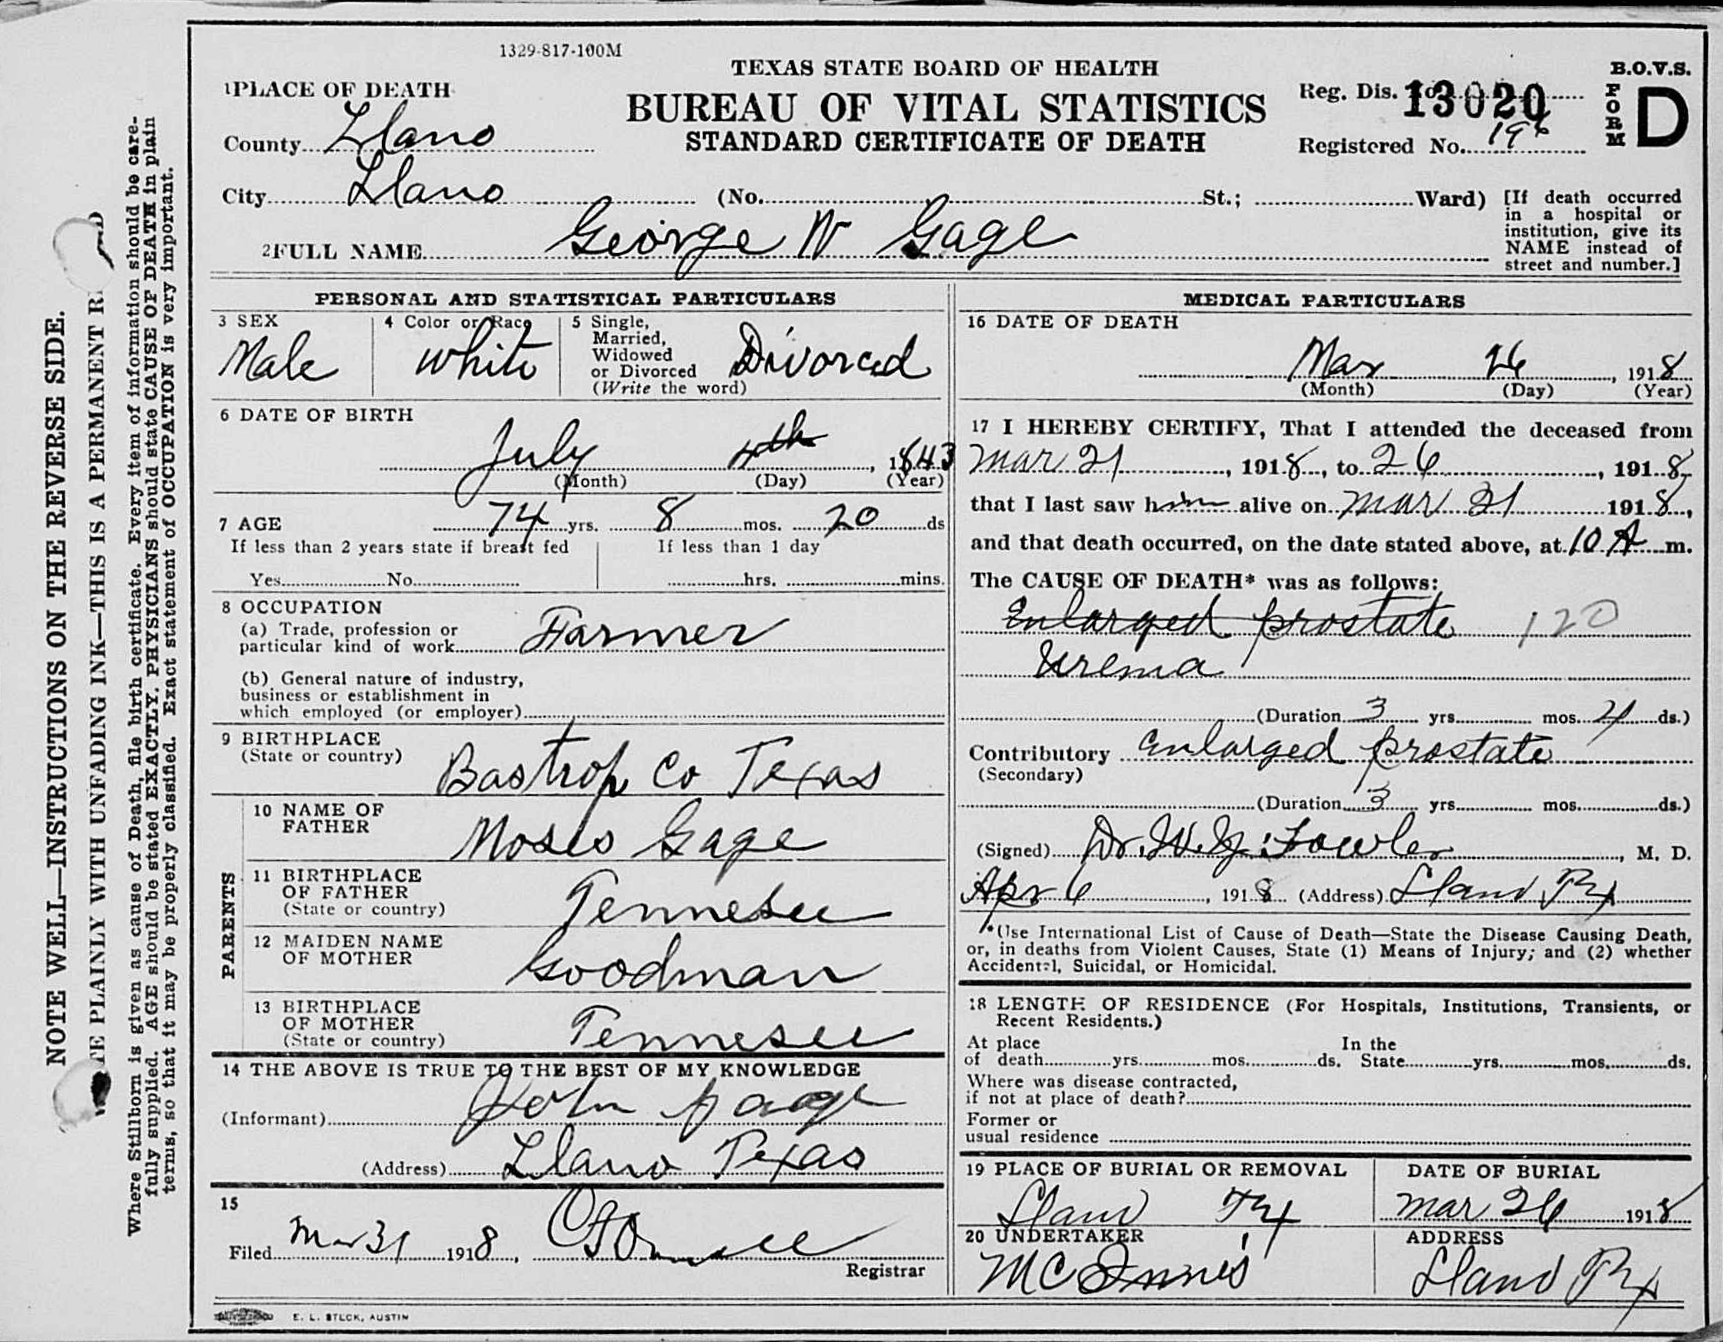 1329-817-100M
TEXAS STATE BOARD OF HEALTH
BUREAU OF VITAL STATISTICS
STANDARD CERTIFICATE OF DEATH
B.O.V.S.
FORM D
Reg. Dis. No. 13020
Registered No. 196
1 PLACE OF DEATH
County Llano
City Llano (No. St.; Ward)
[If death occurred
in a hospital or
institution, give its
NAME instead of
street and number.]
2 FULL NAME George W Gage
PERSONAL AND STATISTICAL PARTICULARS
3 SEX
Male
4 Color or Race
White
5 Single,
Married,
Widowed
or Divorced
(Write the word)
Divorced
6 DATE OF BIRTH
July 4th, 1843
(Month) (Day) (Year)
7 AGE 74 yrs. 8 mos. 20 ds
If less than 2 years state if breast fed
Yes No
If less than 1 day
hrs. mins.
8 OCCUPATION
(a) Trade, profession or
particular kind of work Farmer
(b) General nature of industry,
business or establishment in
which employed (or employer)
9 BIRTHPLACE
(State or country)
Bastrop Co Texas
PARENTS
10 NAME OF
FATHER
Moses Gage
11 BIRTHPLACE
OF FATHER
(State or country)
Tennesee
12 MAIDEN NAME
OF MOTHER
Goodman
13 BIRTHPLACE
OF MOTHER
(State or country)
Tennesee
14 THE ABOVE IS TRUE TO THE BEST OF MY KNOWLEDGE
(Informant) John Gage
(Address) Llano Texas
15
Filed Mar 31 1918,
Registrar
MEDICAL PARTICULARS
16 DATE OF DEATH
Mar 26, 1918
(Month) (Day) (Year)
17 I HEREBY CERTIFY, That I attended the deceased from
Mar 21, 1918, to 26, 1918,
that I last saw him alive on Mar 21 1918,
and that death occurred, on the date stated above, at 10 A m.
The CAUSE OF DEATH* was as follows:
Enlarged prostate 120
Urema
(Duration 3 yrs. mos. 4 ds.)
Contributory Enlarged prostate
(Secondary)
(Duration 3 yrs. mos. ds.)
(Signed) Dr. W. Y. Fowler, M. D.
Apr 6, 1918 (Address) Llano Tx
*Use International List of Cause of Death—State the Disease Causing Death,
or, in deaths from Violent Causes, State (1) Means of Injury; and (2) whether
Accidental, Suicidal, or Homicidal.
18 LENGTH OF RESIDENCE (For Hospitals, Institutions, Transients, or
Recent Residents.)
At place In the
of death yrs. mos. ds. State yrs. mos. ds.
Where was disease contracted,
if not at place of death?
Former or
usual residence
19 PLACE OF BURIAL OR REMOVAL
Llano Tx
DATE OF BURIAL
Mar 26 1918
20 UNDERTAKER
McInnis
ADDRESS
Llano Tx
E. L. STECK, AUSTIN
NOTE WELL—INSTRUCTIONS ON THE REVERSE SIDE.
PLAINLY WITH UNFADING INK—THIS IS A PERMANENT
Where Stillborn is given as cause of Death, file birth certificate. Every item of information should be care-
fully supplied. AGE should be stated EXACTLY. PHYSICIANS should state CAUSE OF DEATH in plain
terms, so that it may be properly classified. Exact statement of OCCUPATION is very important.